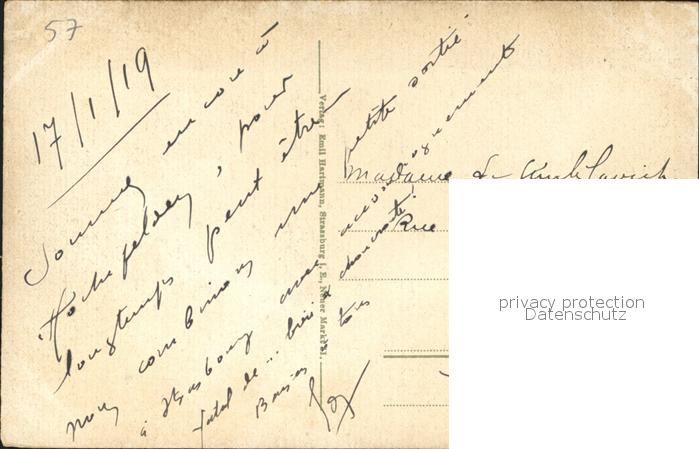 57
17/1/19
Sommes encore à
Hochfelden, pour
longtemps peut être
nous combinons une petite sortie
à Strasbourg avec accompagnement
fatal de... bière & choucroute!
Baisers à tous
Verlag: Emil Hartmann, Strassburg i. E., Neuer Markt 51.
Madame
Rue
privacy protection
Datenschutz